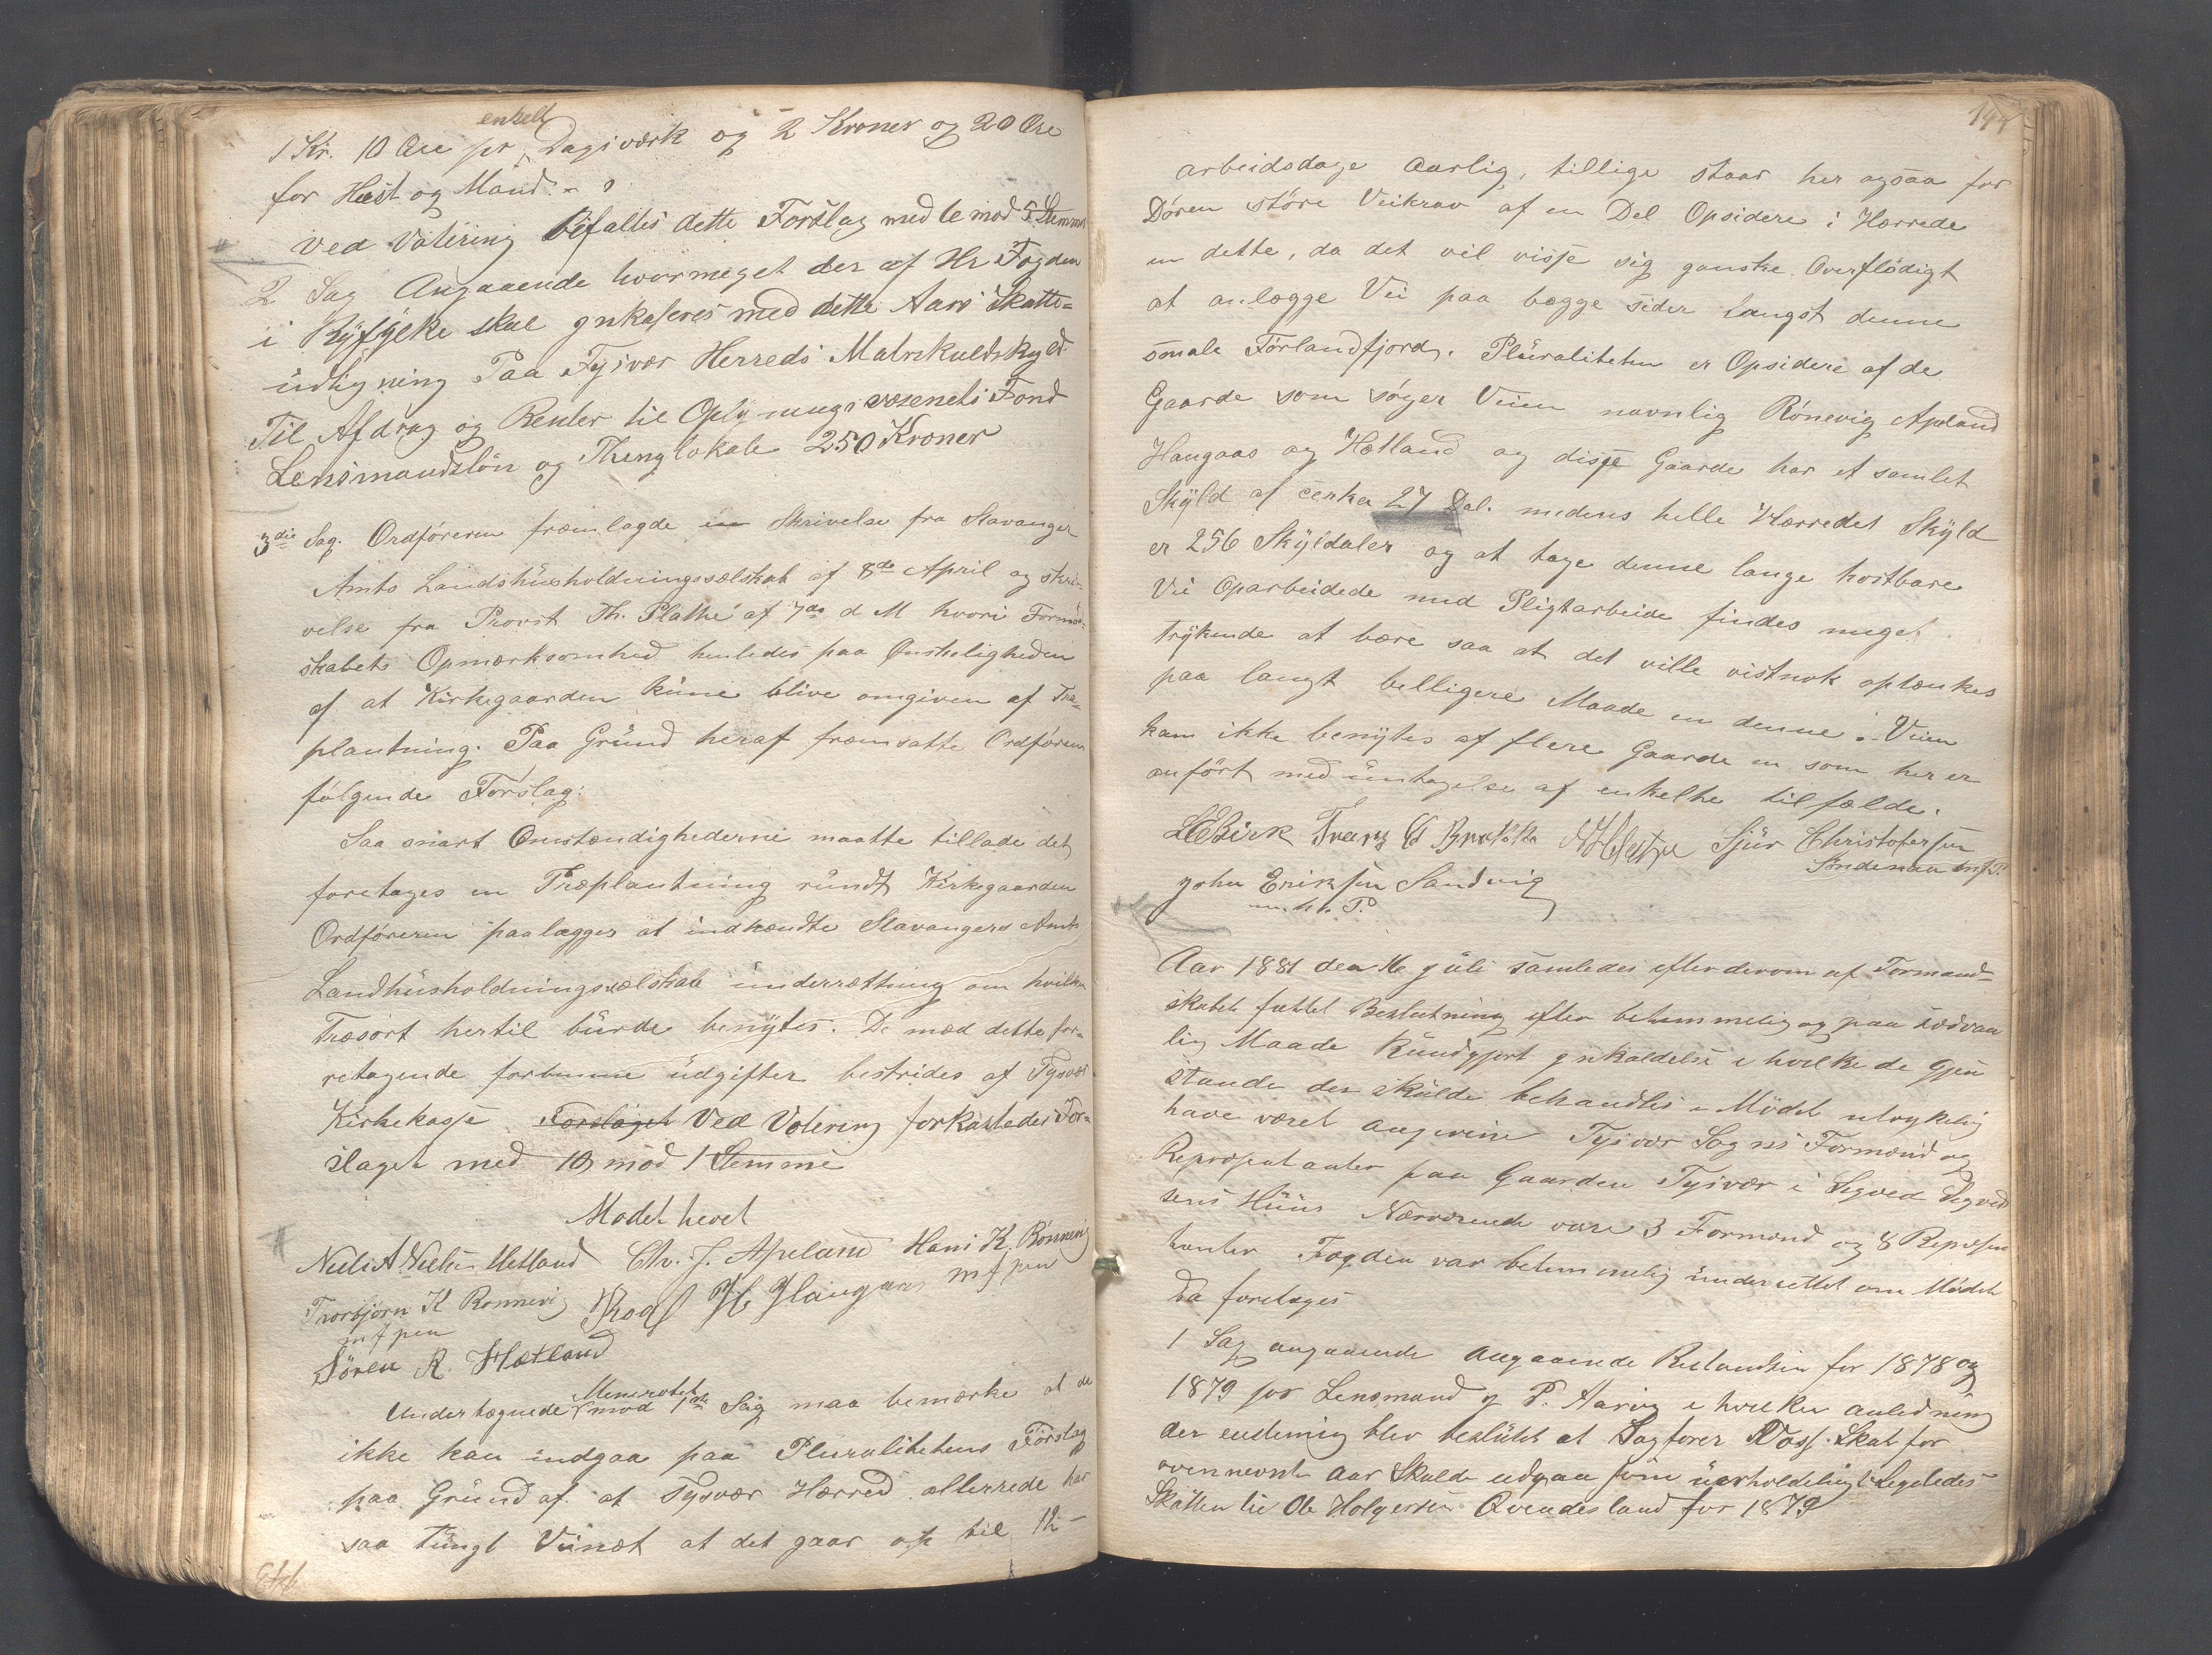 enkelt
1 Kr. 10 Øre pr Dagsværk og 2 Kroner og 20 Øre
for Hæst og Mand.
Ved Votering bifaltes dette Forslag med 6 mod 5 Stemmer
2 Sag Angaaende hvormeget der af Hr Fogden
i Ryfylke skal inkaseres med dette Aars Skatte=
üdligning Paa Tysvær Herreds Matrikulskyld
Til Afdrag og Renter til Oplysningsvæsenets Fond
Lensmandslön og Thinglokale 250 Kroner
3die Sag. Ordföreren fræmlagde en Skrivelse fra Stavanger
Amts Landshüsholdningssælskab af 8de April og skri-
velse fra Provst Th. Plathe af 7de d M hvori Formand-
skabets Opmærksomhed henledes paa Ønskeligheden
af at Kirkegaarden küne blive omgiven af Træ-
plantning. Paa Gründ heraf fræmsatte Ordföreren
fölgende Forslag:
Saa snart Omstændighederne maatte tillade det
foretages en Træplantning ründt Kirkegaarden
Ordföreren paalægges at indhændte Stavangers Amts
Landhüsholdningssælskab ünderrætning om hvilken
Træsort hertil bürde benÿtes. De mæd dette for-
retagende forbunne üdgifter bestrides af Tysvær
Kirkekasse. Forslaget Ved Votering forkastedes For-
slaget med 10 mod 1 Stemme
Mödet hevet
Niels A Nielsen Hetland Chr. J. Apeland Hans K. Rönnevig
Thorbjörn K Rönnevig Roal H. Haugaas m f pen
m f pen
Sören R. Hætland
Minerotet
Undertegnede mod 1ste Sag maa bemærke at de
ikke kan indgaa paa Pluralitetens Forslag
paa Gründ af at Tysvær Hærred allerrede har
saa tüngt Veinæt at det gaar op til 12-
144
arbeidsdage aarlig, tillige staar her ogsaa for
Dören störe Veikrav af en Del Opsidere i Hærrede
en dette, da det vil visse sig ganske Overflödigt
at anlægge Vei paa begge sider langst denne
smale Förlandfjord. Plüraliteten er Opsidere af de
Gaarde som söger Veien navnlig Rönevig Apeland
Haugaas og Hætland og disse Gaarde har et samlet
Skÿld af cerka 27 Dal. medens helle Hærredet Skÿld
er 256 Skÿldaler og at tage denne lange kostbare
Vei Oparbeidede med Pligtarbeide findes meget
trÿkende at bære saa at det ville vistnok optænkes
paa langt belligere Maade en denne. Veien
kan ikke benÿtes af flere Gaarde en som her er
anfört med üntagelse af enkelte tilfælde.
L E Birk Franz Sjür Christofersen
Söndenaa m f P.
John Eriksen Sandvig
m. h. P.
Aar 1881 den 16 Jüli samledes efter derom af Formand-
skabet fattet Beslutning efter betimmelig og paa sædvan
lig Maade Kundgjort Inkaldelse i hvilke de Gjen
stande der skülde behandles i Mödet utrykelig
have været angivne Tysvær Sogns Formænd og
Repræsentanter paa Gaarden Tysvær i Sigved Sigved
sens Hüüs Nærværende vare 3 Formænd og 8 Repræsen
tanter Fogden var betimmelig ünderrettet om Mödet
Da foretages
1 Sag angaaende Angaaende Restandsen for 1878 og
1879 for Lensmand P. Aarvig i hvilken anledning
der endstemig blev beslütet at Sagförer Voss. Skat for
ovennevnte Aar Skulde udgaa som üerholdeligt Legeledes
Skatten til Ole Holgersen Qvendesland for 1879